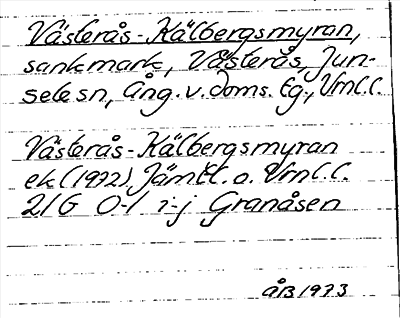 Västerås-Kälbergsmyran,
sankmark, Västerås, Jun-
sele sn, Ång. v. doms. tg., Vrnl.l.
Västerås-Kälbergsmyran
ek (1972) Jämtl. o. Vrnl.l.
21G 0-1 i-j Granåsen
ÅB 1973